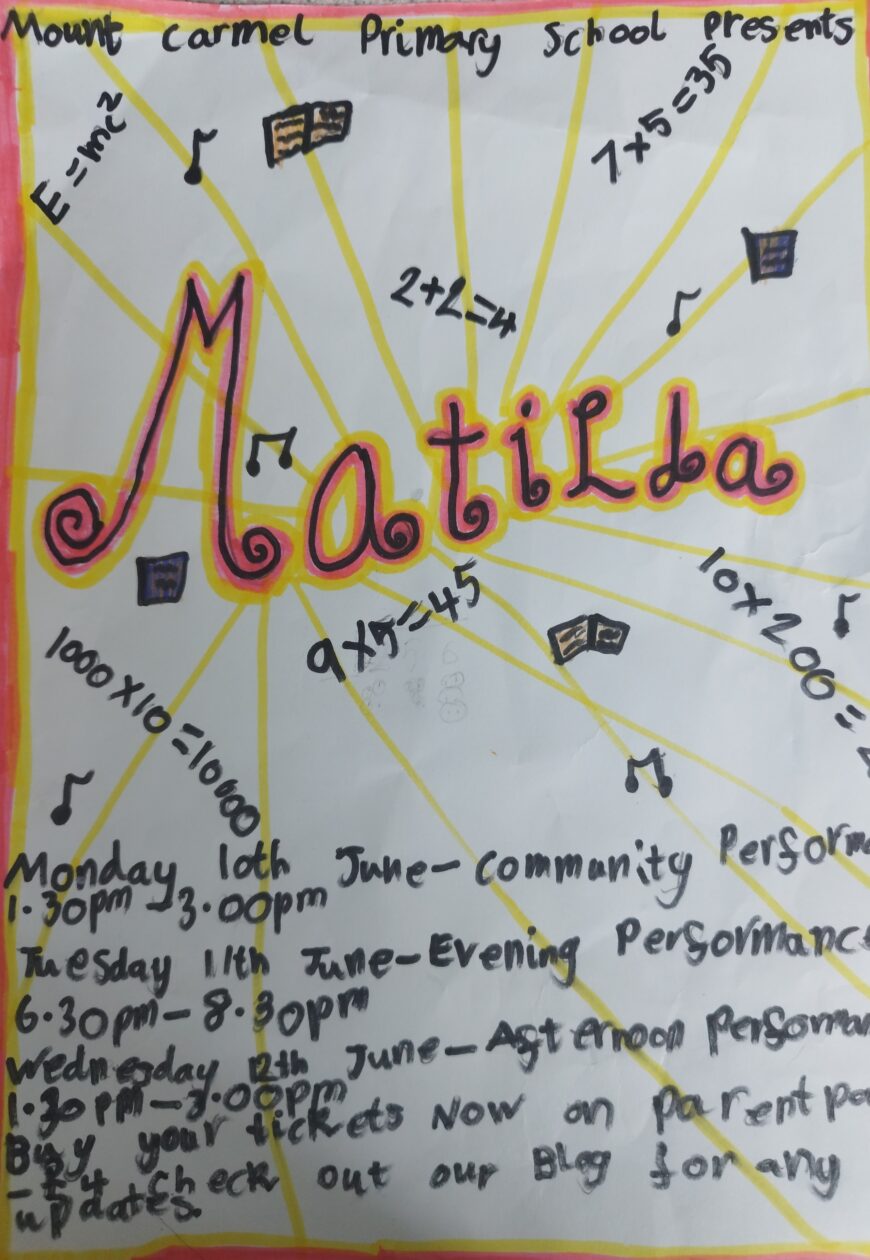 Mount Carmel Primary School Presents
E=mc²
7x5=35
2+2=4
Matilda
9x5=45
10x200=
1000x10=10000
Monday 10th June- Community Perform
1.30pm-3.00pm
Tuesday 11th June-Evening Performanc
6.30pm-8.30pm
Wednesday 12th June-Afternoon Performan
1.30pm-3.00pm
Buy your tickets Now on Parentpa
-£4 check out our Blog for any
updates.